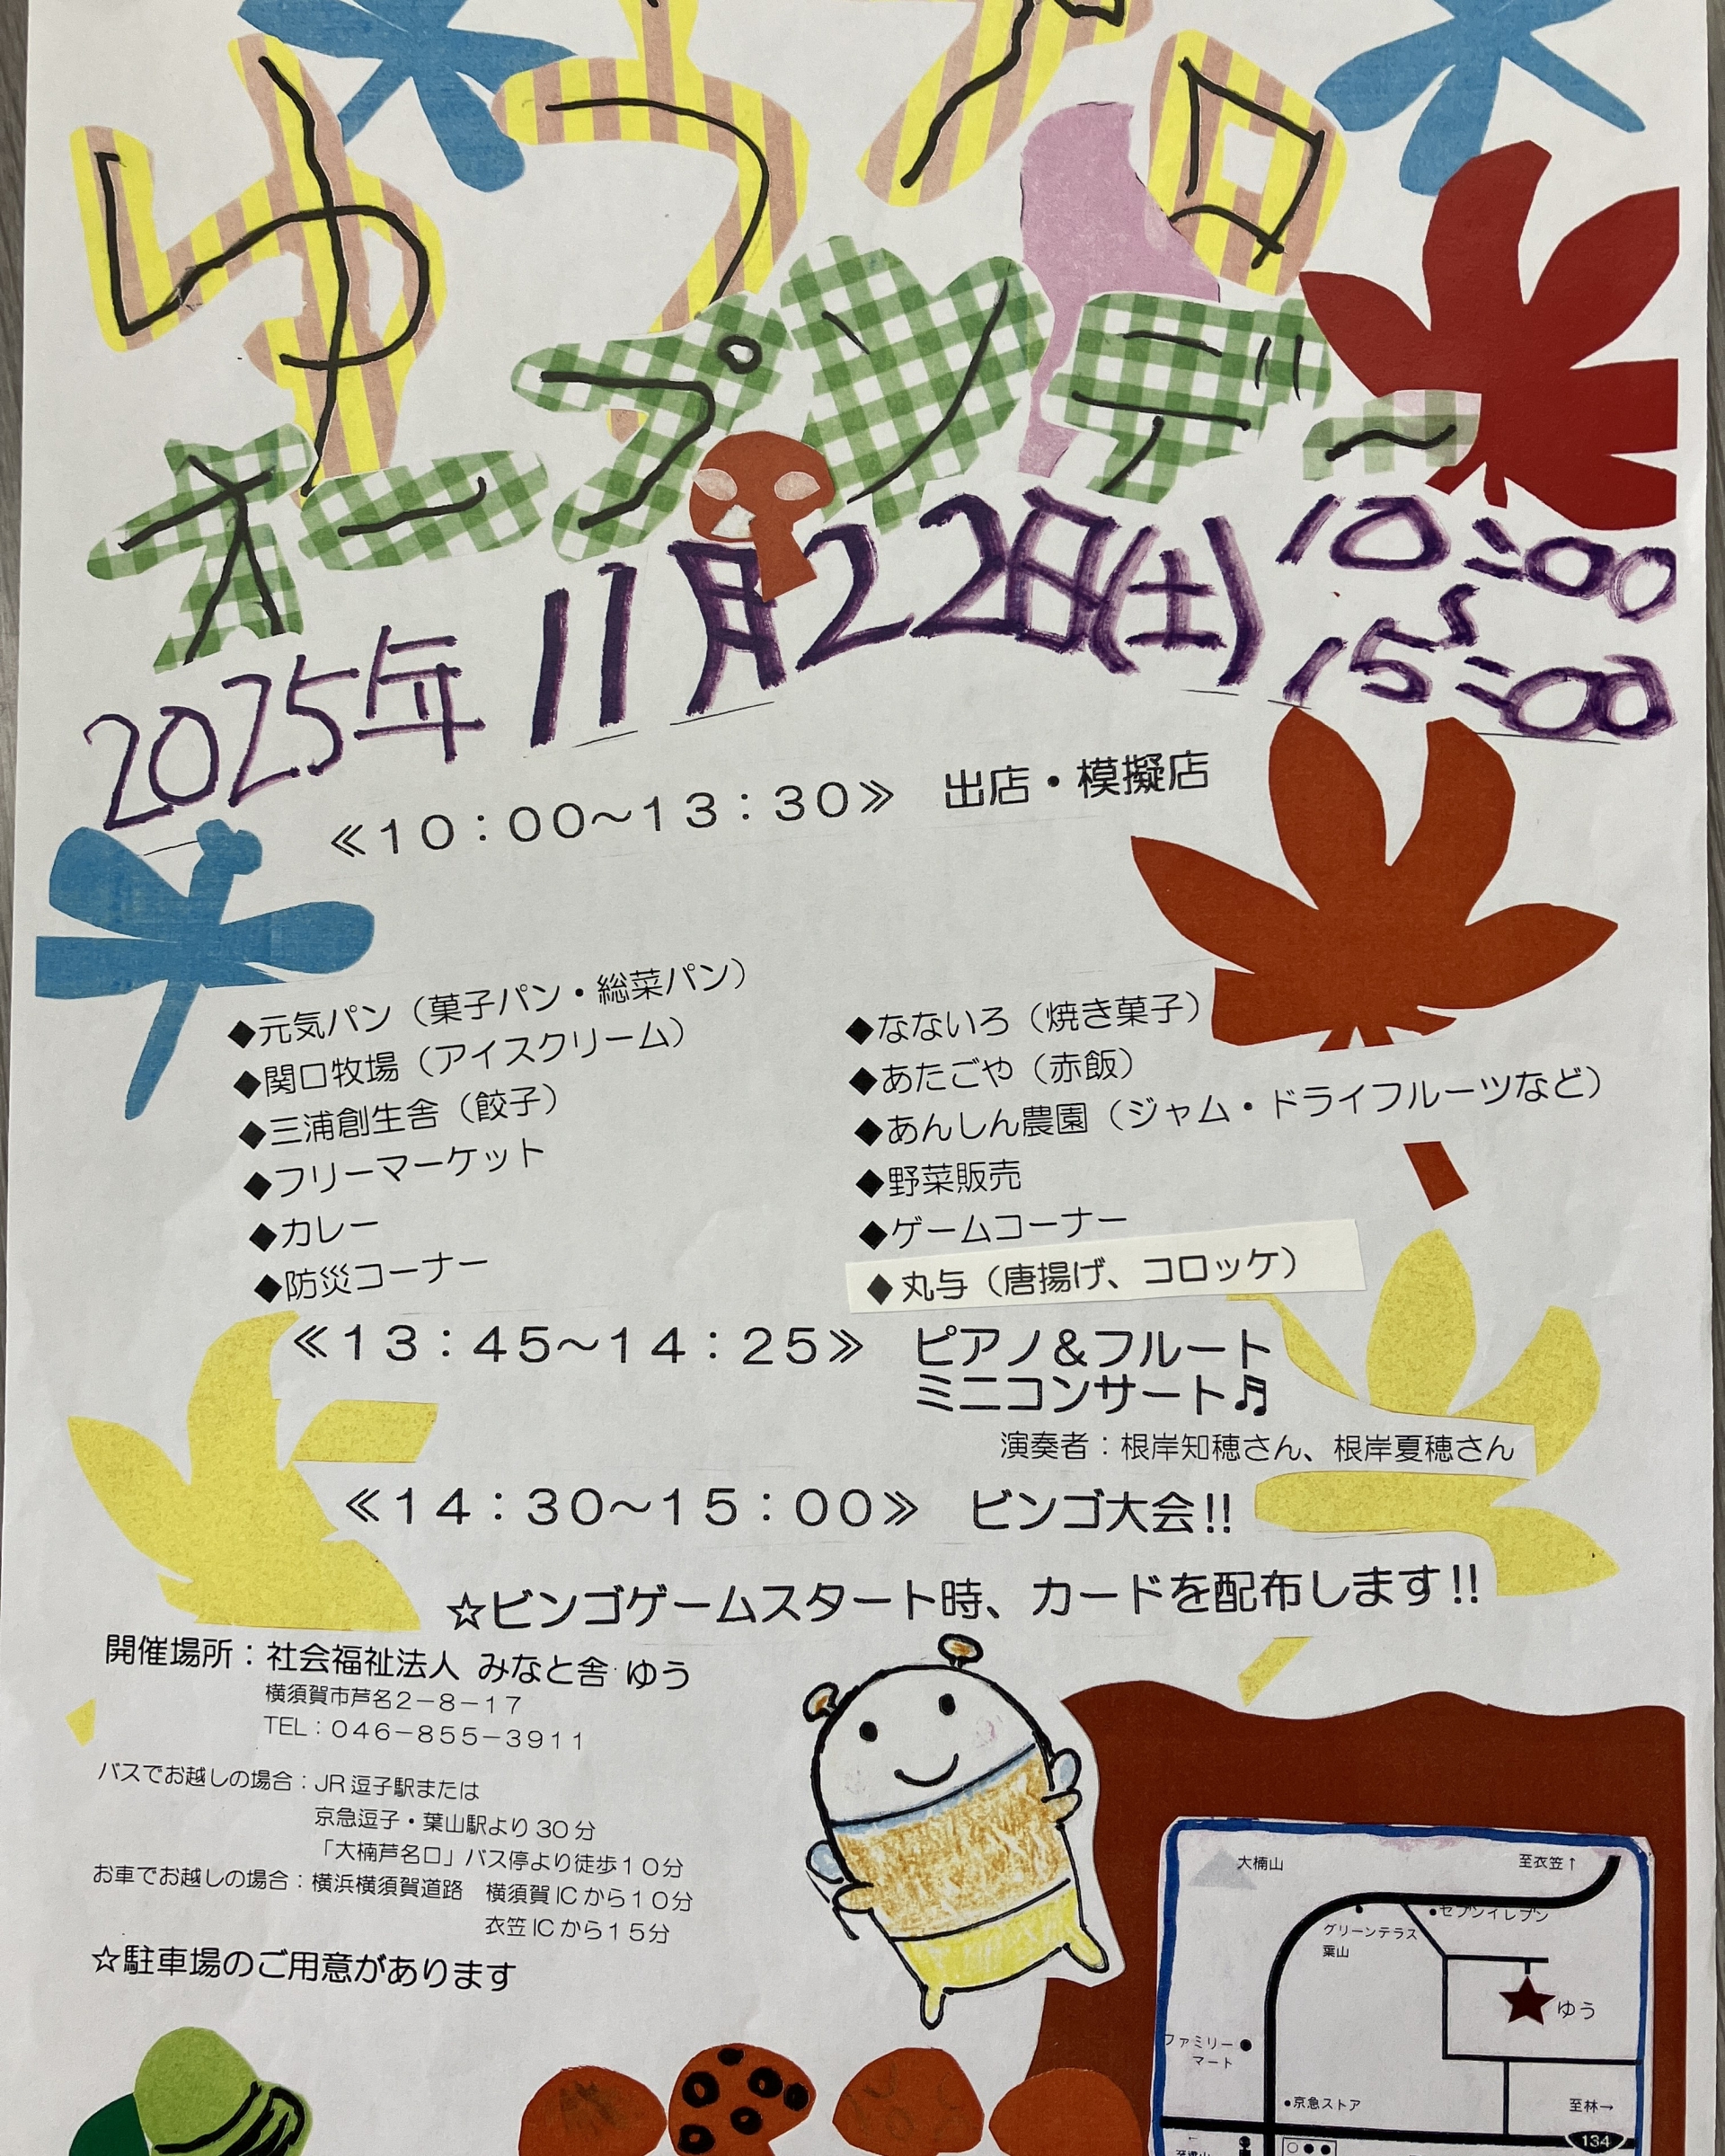 ゆうプロ
オープンデー
2025年 11月22日(土) 10:00
〜
15:00
≪10:00〜13:30≫ 出店・模擬店
◆元気パン（菓子パン・総菜パン）
◆関口牧場（アイスクリーム）
◆三浦創生舎（餃子）
◆フリーマーケット
◆カレー
◆防災コーナー
◆なないろ（焼き菓子）
◆あたごや（赤飯）
◆あんしん農園（ジャム・ドライフルーツなど）
◆野菜販売
◆ゲームコーナー
◆丸与（唐揚げ、コロッケ）
≪13:45〜14:25≫ ピアノ＆フルート
ミニコンサート♬
演奏者：根岸知穂さん、根岸夏穂さん
≪14:30〜15:00≫ ビンゴ大会!!
☆ビンゴゲームスタート時、カードを配布します!!
開催場所：社会福祉法人 みなと舎 ゆう
横須賀市芦名2−8−17
TEL：046−855−3911
バスでお越しの場合：JR逗子駅または
京急逗子・葉山駅より30分
「大楠芦名口」バス停より徒歩10分
お車でお越しの場合：横浜横須賀道路 横須賀ICから10分
衣笠ICから15分
☆駐車場のご用意があります
大楠山
至衣笠↑
•セブンイレブン
グリーンテラス
葉山
ゆう
ファミリー
マート
•京急ストア
至林→
134